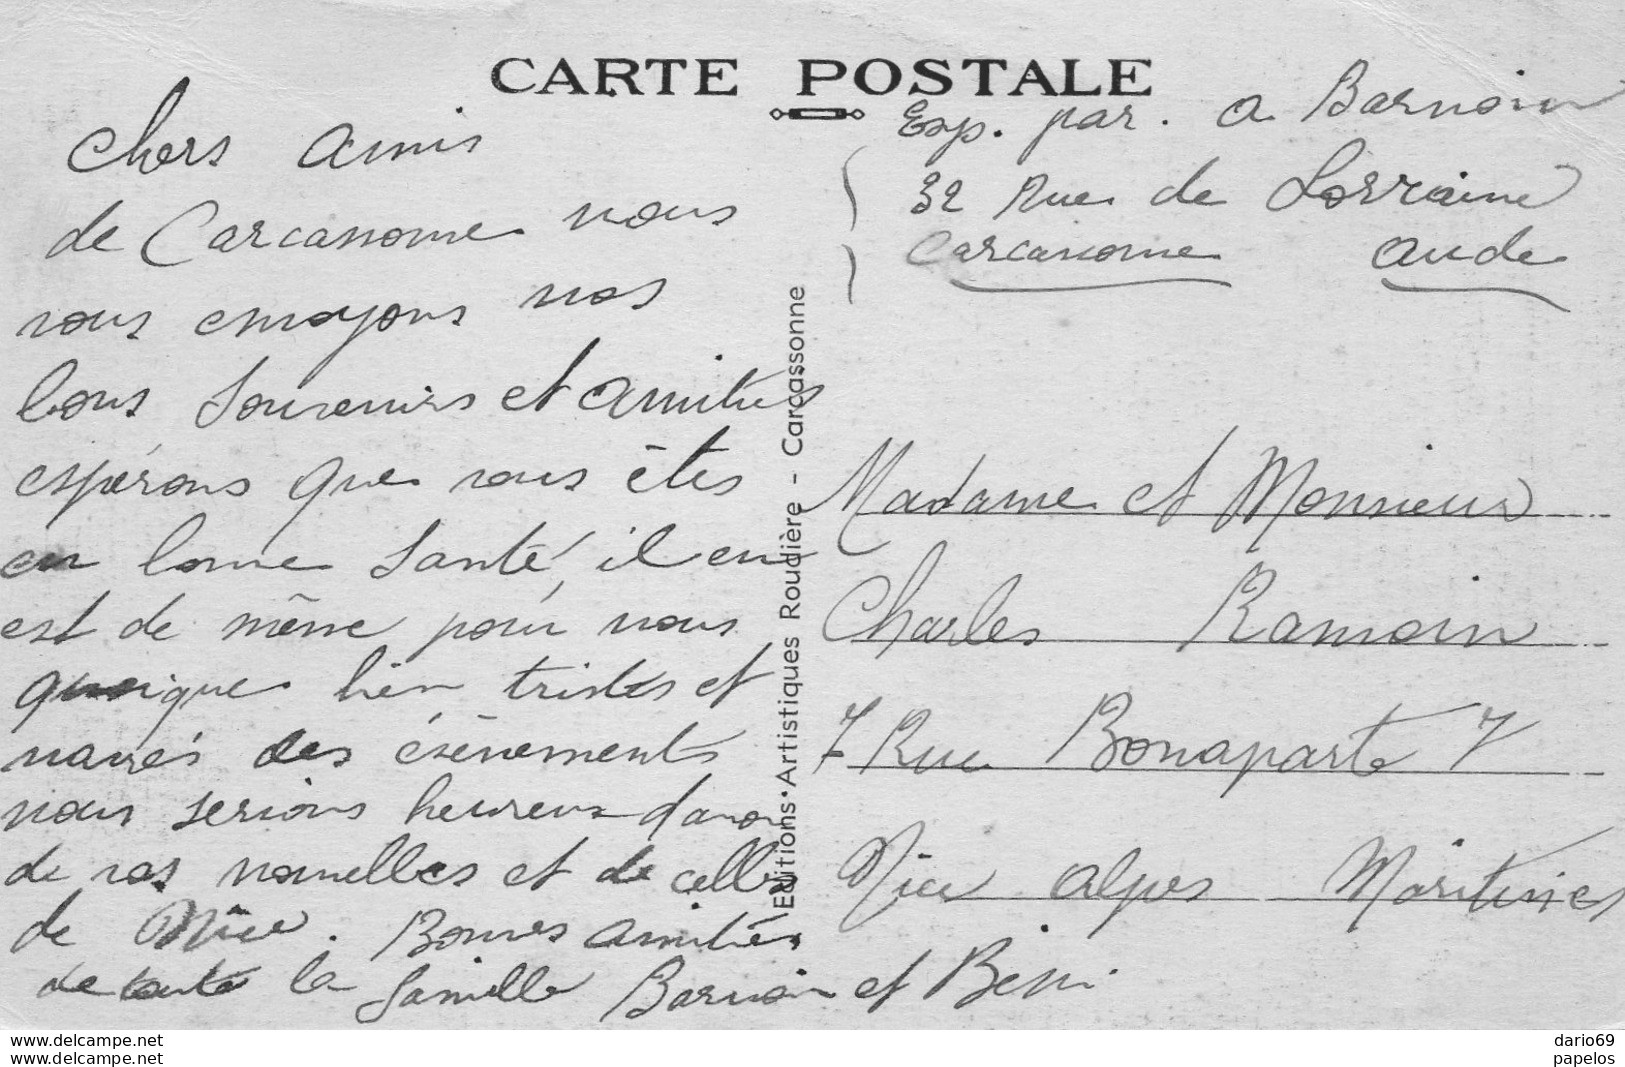 CARTE POSTALE
Exp. par. A Barnoin
32 Rue de Lorraine
Carcassonne Aude
Chers Amis
de Carcassonne nous
vous envoyons nos
bons Souvenirs et Amitiés
espérons que vous êtes
en bonne Santé, il en
est de même pour nous
quoique bien tristes et
navrés des évènements
nous serions heureux d'avoir
de vos nouvelles et de celles
de Nice. Bonnes amitiés
de toute la famille Barnoin et
Editions Artistiques Roudière - Carcassonne
Madame et Monsieur
Charles Ramoin
7 Rue Bonaparte 7
Nice Alpes Maritimes
www.delcampe.net
www.delcampe.net
dario69
papelos